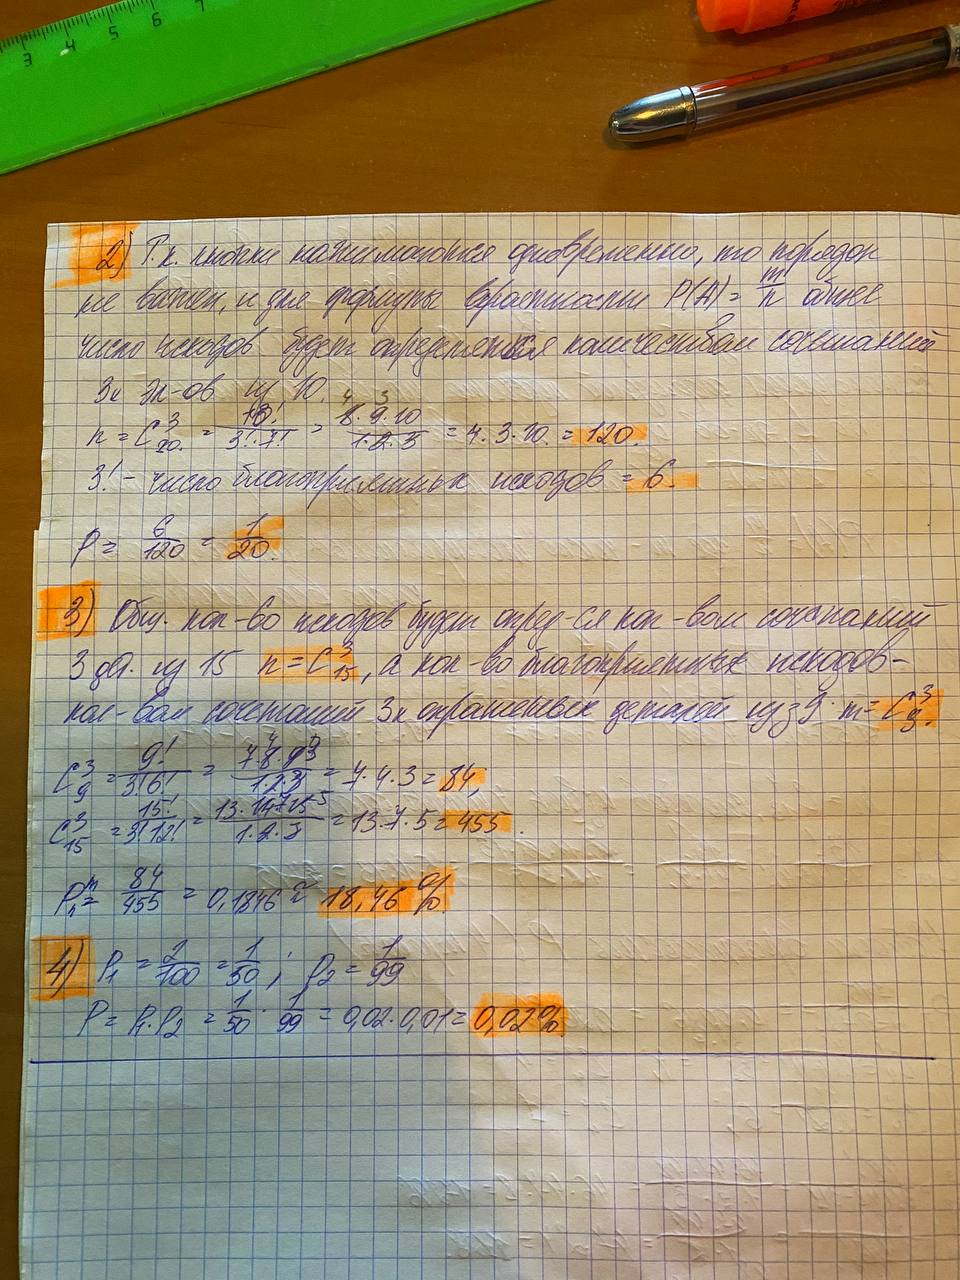 3 4 5 6 7
2) Т.к. кнопки нажимаются одновременно, то порядок
не важен, и для формулы вероятности P(A) = m/n общее
число исходов будет определяться количеством сочетаний
3х эл-ов из 10.
n = C³₁₀ = 10!/(3!·7!) = 8·9·10/(1·2·3) = 4·3·10 = 120.
3! - число благоприятных исходов = 6.
P = 6/120 = 1/20.
3) Общ. кол-во исходов будет опред-ся кол-вом сочетаний
3 дет. из 15 n = C³₁₅, а кол-во благоприятных исходов -
кол-вом сочетаний 3х окрашенных деталей из 9. m = C³₉.
C³₉ = 9!/(3!6!) = 7·8·9/(1·2·3) = 7·4·3 = 84;
C³₁₅ = 15!/(3!12!) = 13·14·15/(1·2·3) = 13·7·5 = 455.
P = m/n = 84/455 = 0,1846 ≈ 18,46%
4) P₁ = 2/100 = 1/50; P₂ = 1/99
P = P₁·P₂ = 1/50 · 1/99 = 0,02·0,01 = 0,02%